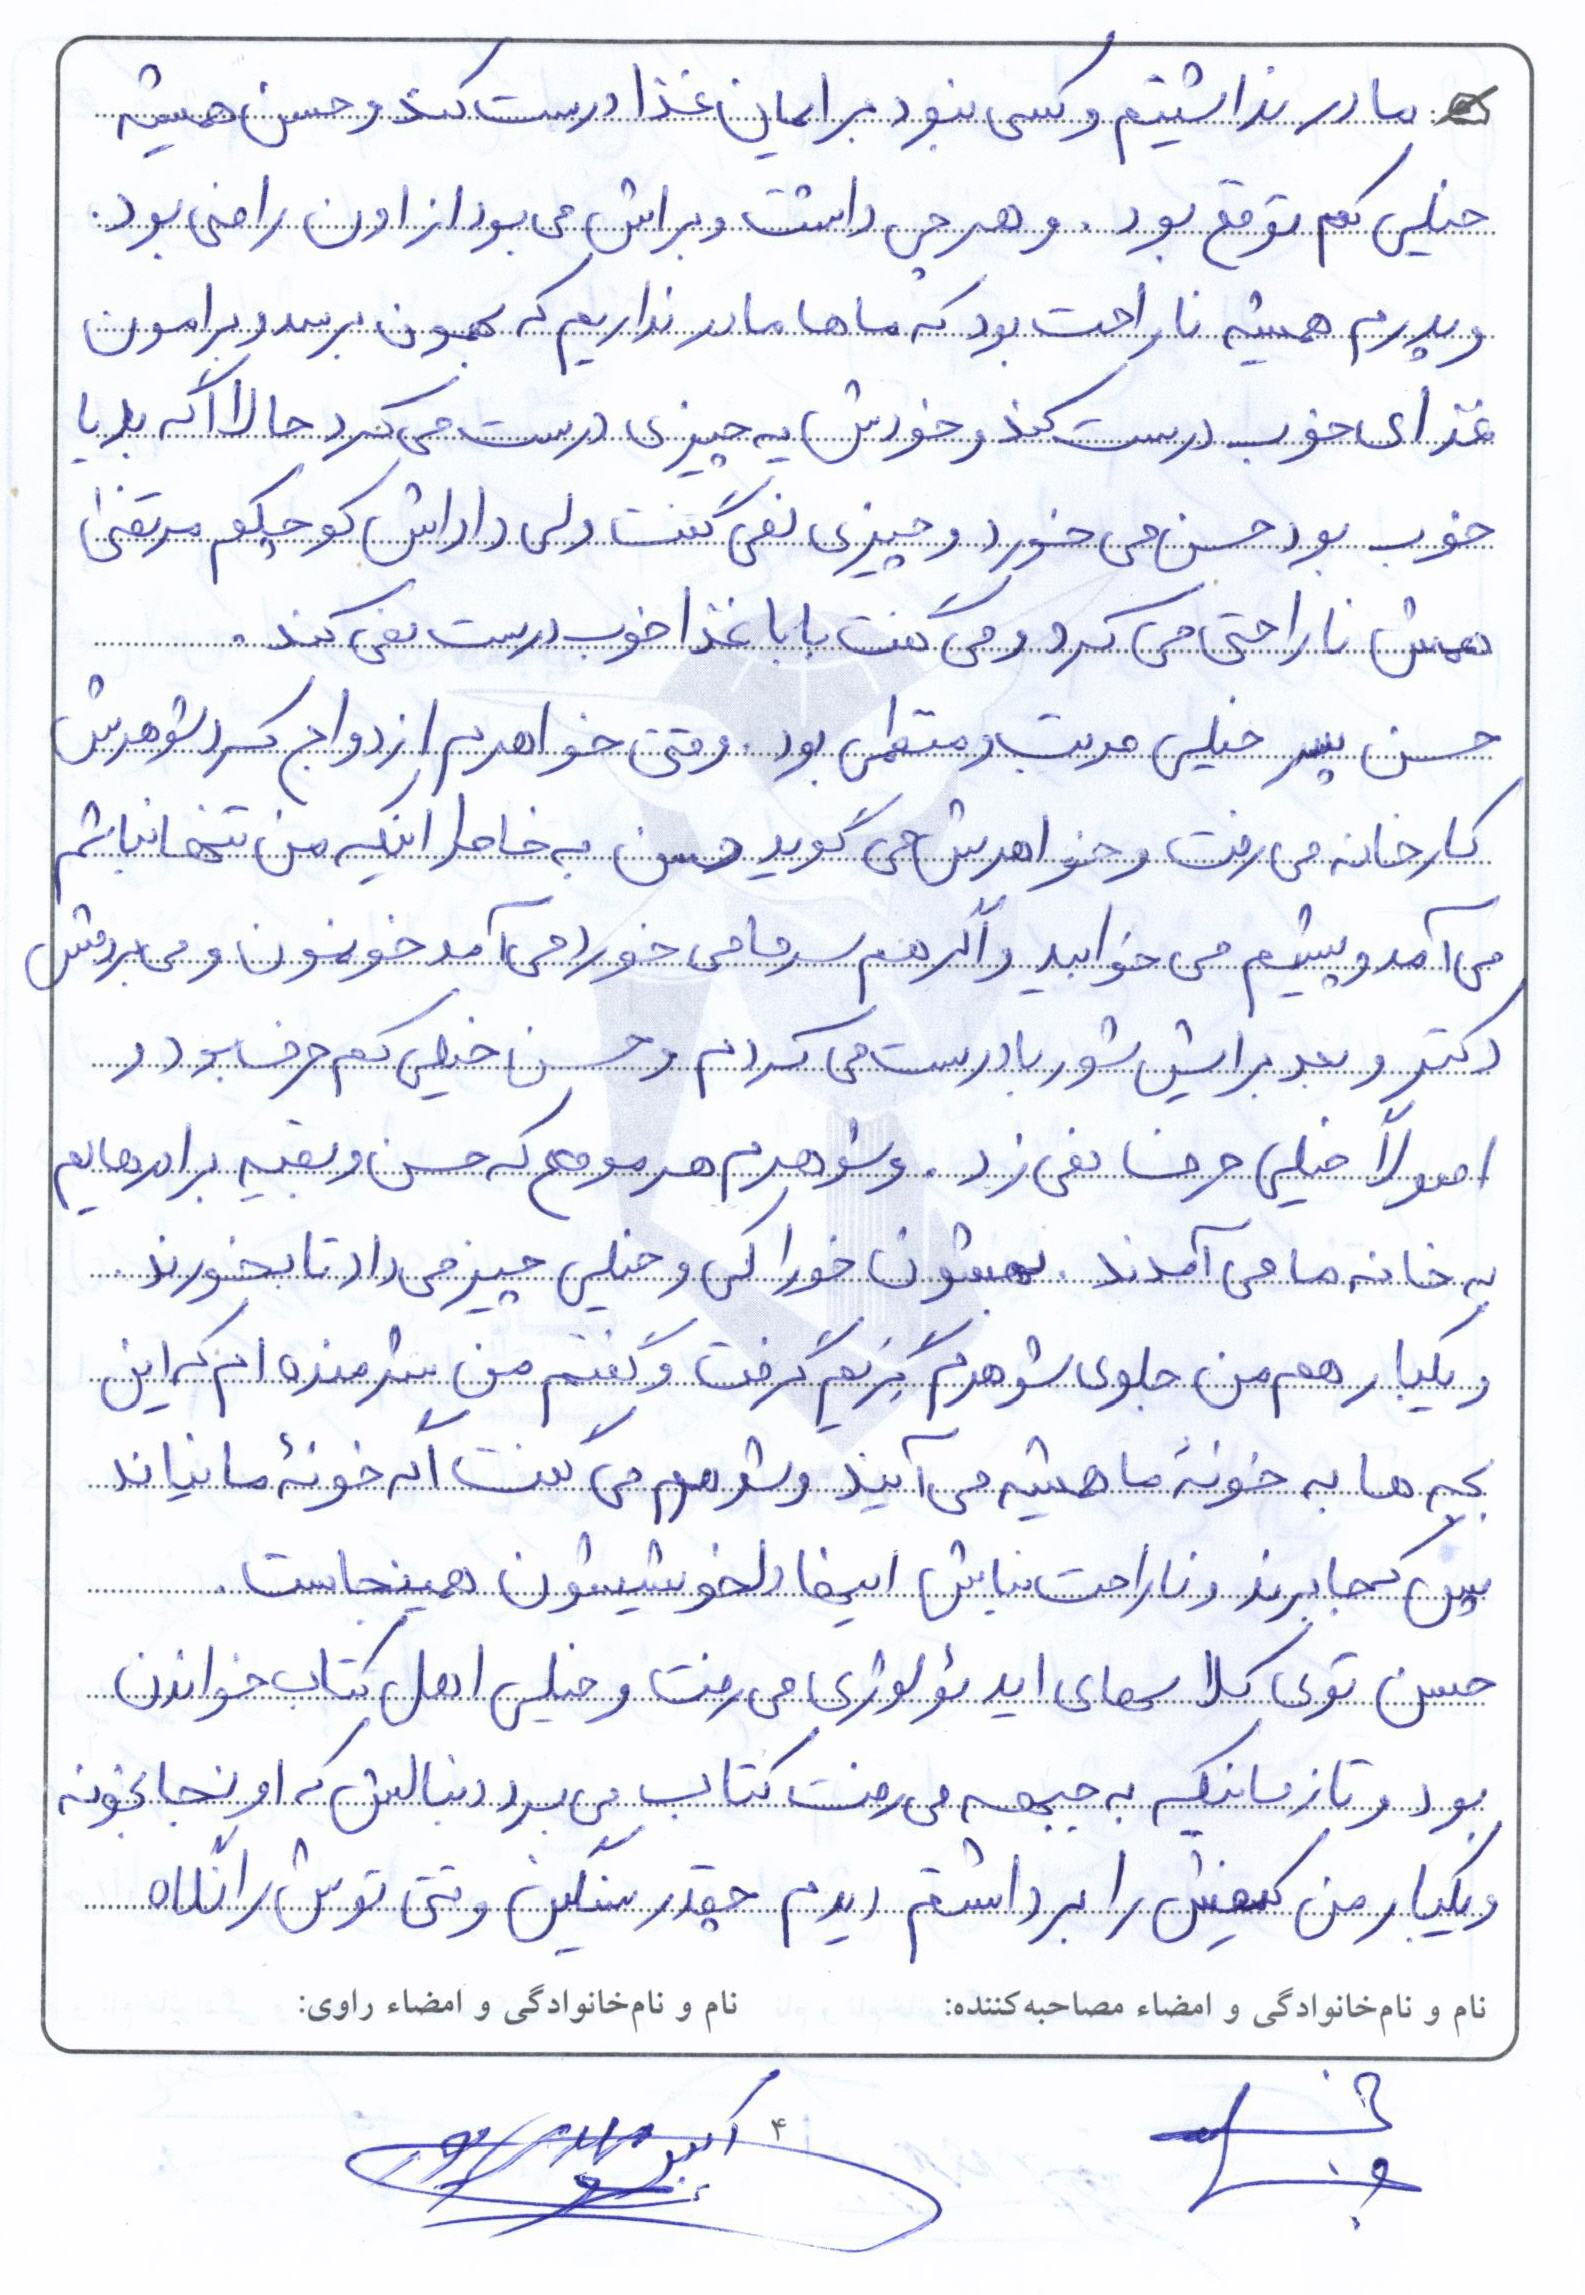 مادر نداشتیم و کسی نبود برایمان غذا درست کند و حسن همیشه
خیلی کم توقع بود . و هر چی داشت و براش می بود از اون راضی بود .
و پدرم همیشه ناراحت بود که ماها مادر نداریم که بهمون برسد و برامون
غذای خوب درست کند و خودش یه چیزی درست می کرد حالا اگه بد یا
خوب بود حسن می خورد و چیزی نمی گفت ولی داداش کوچیکم مرتضی
همش ناراحتی می کرد و می گفت بابا غذا خوب درست نمی کند .
حسن پسر خیلی مرتب و منظمی بود . وقتی خواهرم ازدواج کرد شوهرش
کارخانه می رفت و خواهرش می گوید حسن به خاطر اینکه من تنها نباشم
می آمد و پیشم می خوابید و اگر هم سرما می خورد می آمد خونمون و می بردمش
دکتر و بعد برایش شوربا درست می کردم و حسن خیلی کم حرف بود و
اصولاً خیلی حرف نمی زد . و شوهرم هر موقع که حسن و بقیه برادرهایم
به خانه ما می آمدند . بهشون خوراکی و خیلی چیز می داد تا بخورند .
و یکبار هم من جلوی شوهرم گریم گرفت و گفتم من شرمنده ام که این
بچه ها به خونهٔ ما همیشه می آیند و شوهرم می گفت اگه خونهٔ ما نیاند
پس کجا برند و ناراحت نباش اینها دلخوشیشون همینجاست .
حسن توی کلاسهای ایدئولوژی می رفت و خیلی اهل کتاب خواندن
بود و تا زمانیکه به جبهه می رفت کتاب می برد دنبالش که اونجا بخونه
و یکبار من کیفش را برداشتم دیدم چقدر سنگین وقتی توش را نگاه
نام و نام‌خانوادگی و امضاء مصاحبه‌کننده:
نام و نام‌خانوادگی و امضاء راوی:
۴